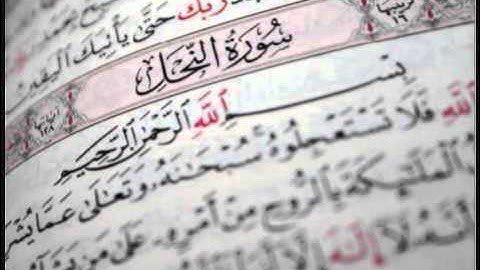 ربك حتى يأتيك اليقين
سورة النحل
بسم الله الرحمن الرحيم
الله فلا تستعجلوه سبحانه وتعالى عما يشر
الملئكة بالروح من أمره على من يشاء
أنه لا إله إلا أنا